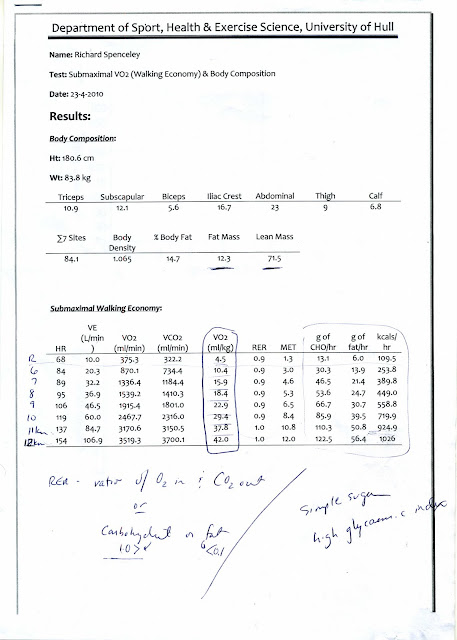 Department of Sport, Health & Exercise Science, University of Hull
Name: Richard Spenceley
Test: Submaximal VO2 (Walking Economy) & Body Composition
Date: 23-4-2010
Results:
Body Composition:
Ht: 180.6 cm
Wt: 83.8 kg
Triceps Subscapular Biceps Iliac Crest Abdominal Thigh Calf
10.9 12.1 5.6 16.7 23 9 6.8
∑7 Sites Body Density % Body Fat Fat Mass Lean Mass
84.1 1.065 14.7 12.3 71.5
Submaximal Walking Economy:
HR VE (L/min) VO2 (ml/min) VCO2 (ml/min) VO2 (ml/kg) RER MET g of CHO/hr g of fat/hr kcals/hr
R 68 10.0 375.3 322.2 4.5 0.9 1.3 13.1 6.0 109.5
6 84 20.3 870.1 734.4 10.4 0.9 3.0 30.3 13.9 253.8
7 89 32.2 1336.4 1184.4 15.9 0.9 4.6 46.5 21.4 389.8
8 95 36.9 1539.2 1410.3 18.4 0.9 5.3 53.6 24.7 449.0
9 106 46.5 1915.4 1801.0 22.9 0.9 6.5 66.7 30.7 558.8
10 119 60.0 2467.7 2316.0 29.4 0.9 8.4 85.9 39.5 719.9
11km 137 84.7 3170.6 3150.5 37.8 1.0 10.8 110.3 50.8 924.9
12km 154 106.9 3519.3 3700.1 42.0 1.0 12.0 122.5 56.4 1026
RER - ratio of O2 in & CO2 out
or
Carbohydrate or fat
1.0 >
simple sugar
high glycaemic index